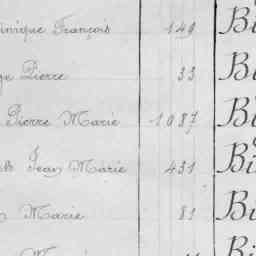 François 149 Bi
Pierre 33 Bi
Pierre Marie 1087 Bi
Jean Marie 431 Bi
Marie 81 Bi
Bi